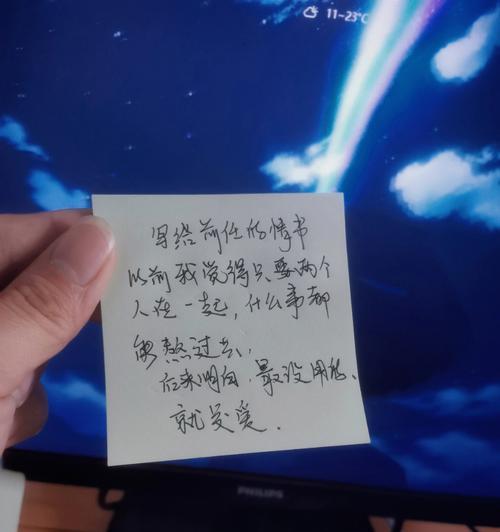 11-23°C
写给前任的情书
以前我觉得只要两个
人在一起,什么事都
能熬过去、
后来明白,最没用的、
就是爱.
PHILIPS